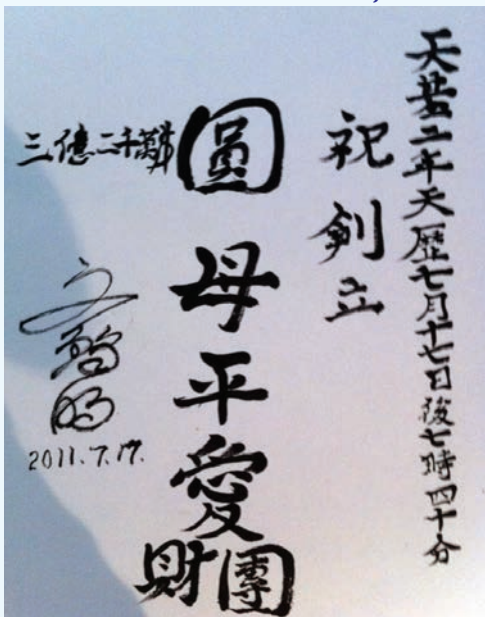 天基二年天歷七月十七日後七時四十分
祝創立
圓母平愛
財團
三億二千萬弗
文鮮明
2011.7.17.